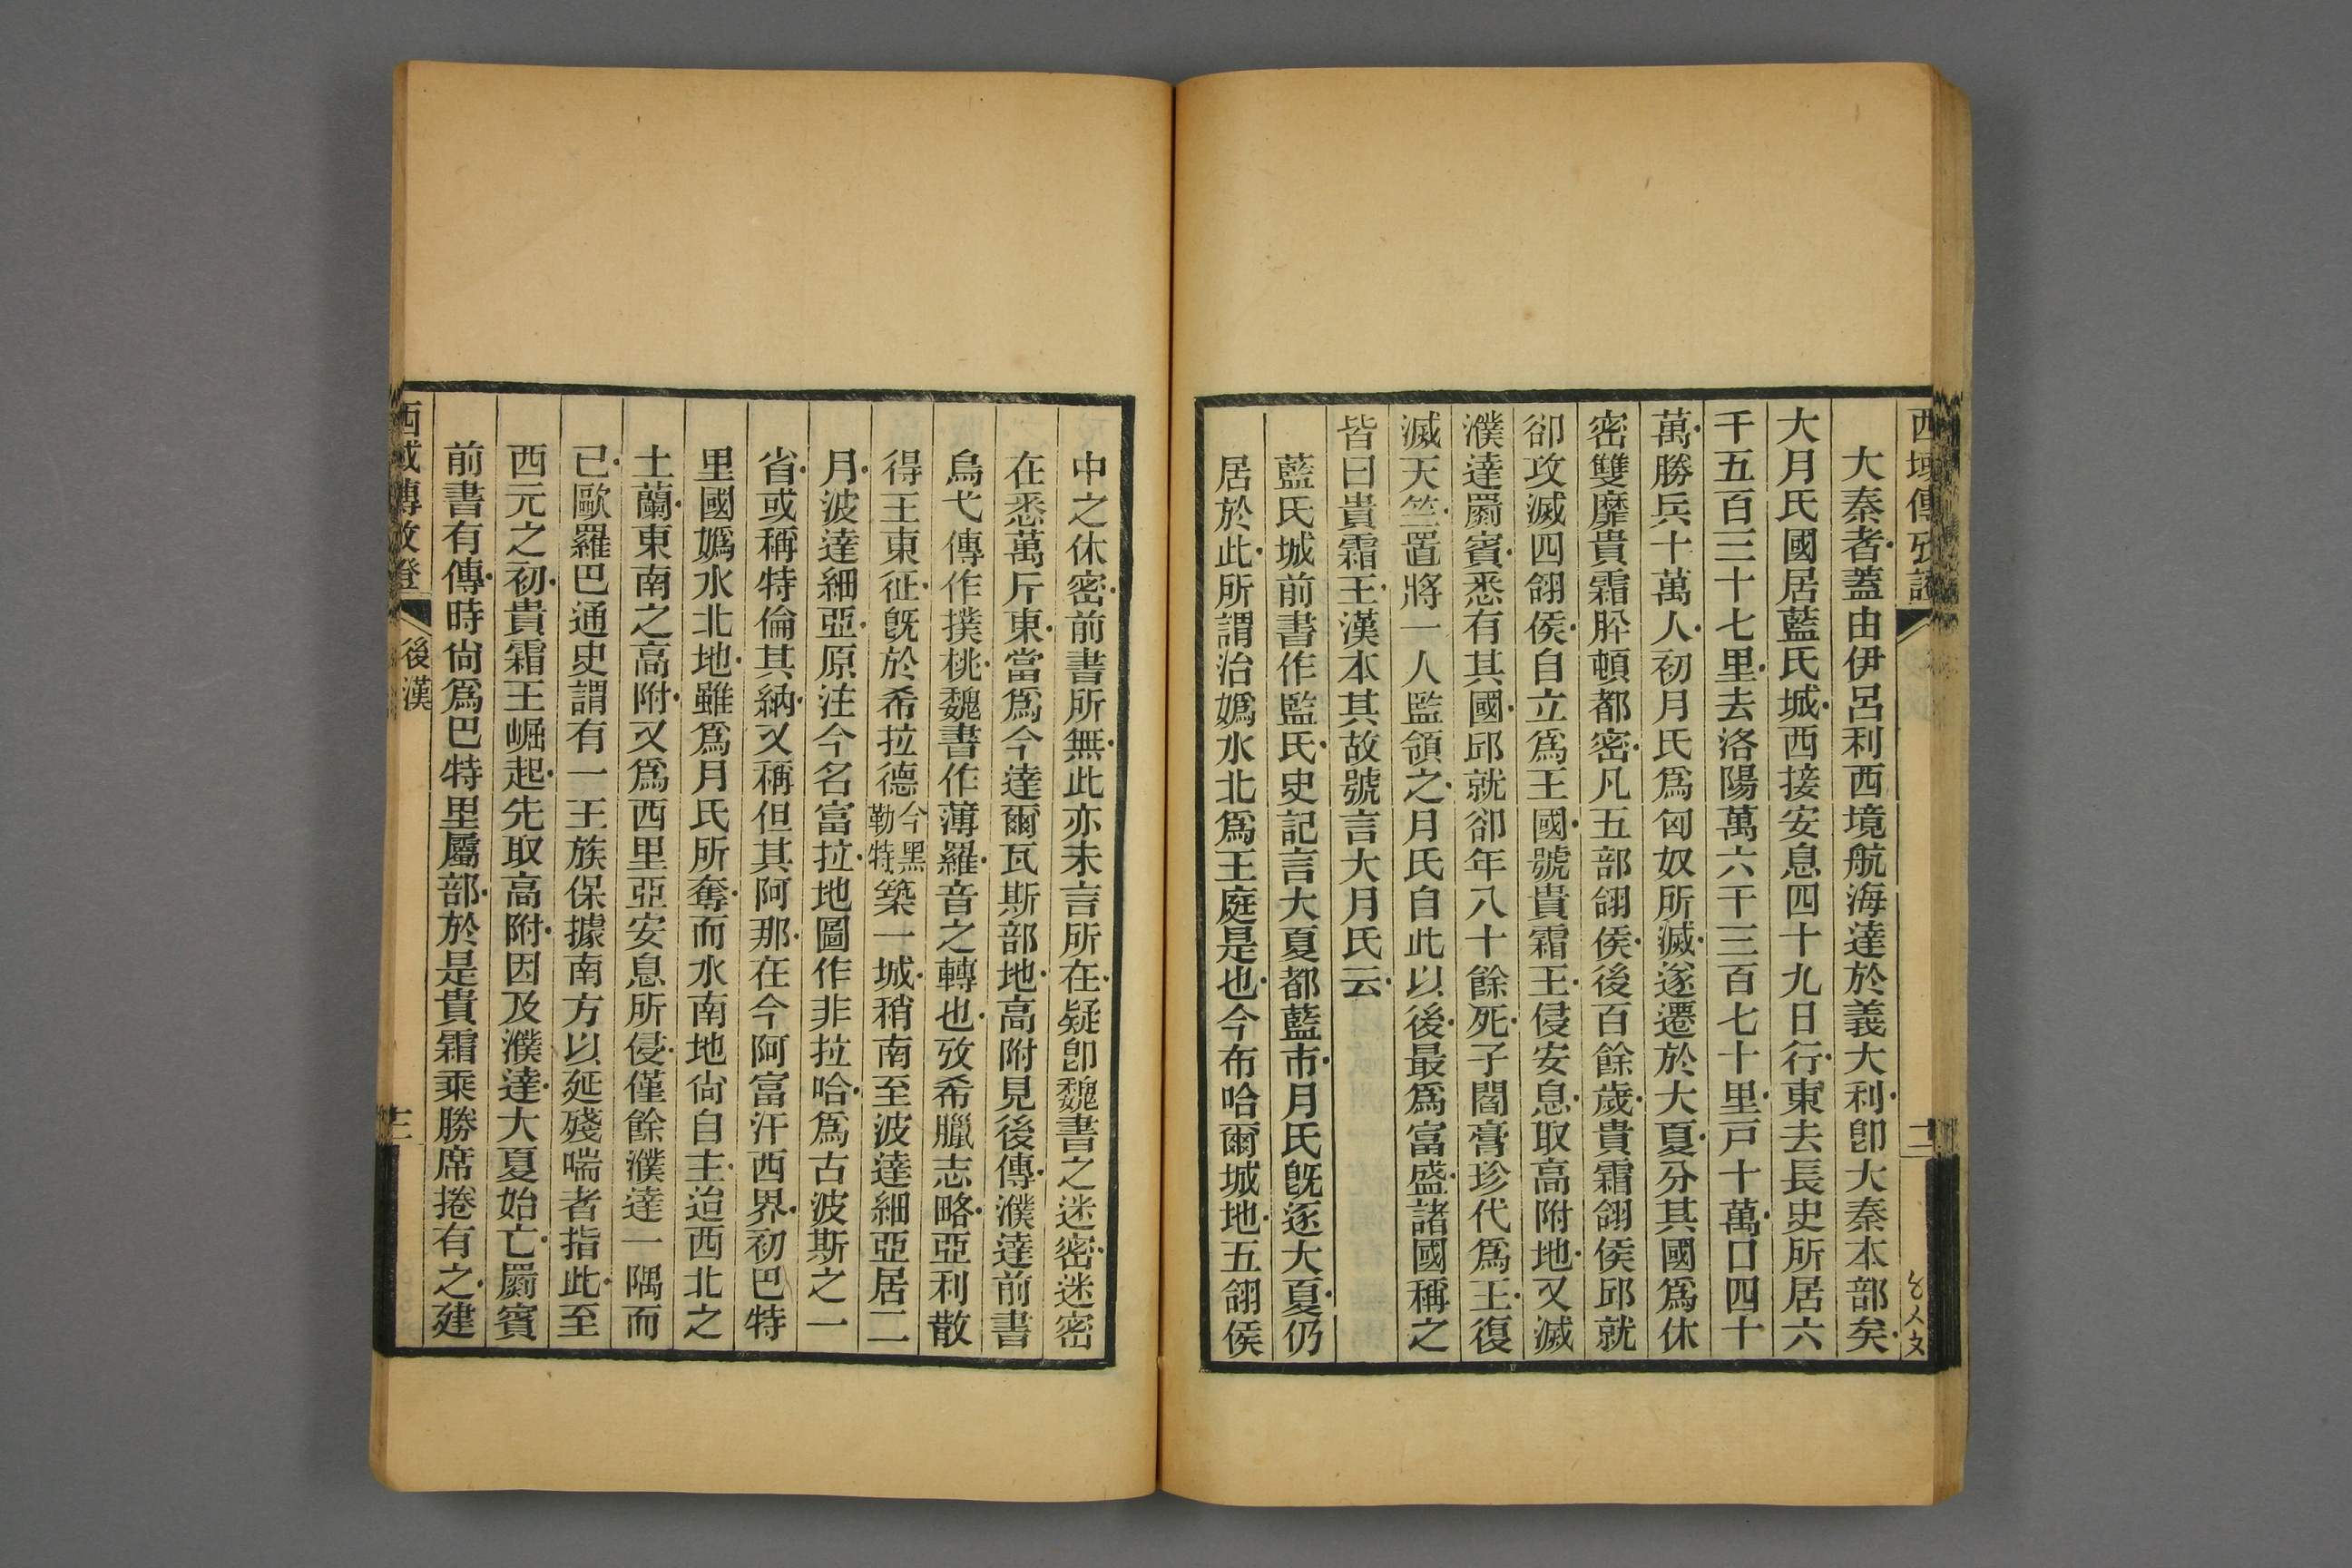 西域傳攷證
二
大秦者蓋由伊呂利西境航海達於義大利卽大秦本部矣
大月氏國居藍氏城西接安息四十九日行東去長史所居六
千五百三十七里去洛陽萬六千三百七十里戸十萬口四十
萬勝兵十萬人初月氏爲匈奴所滅遂遷於大夏分其國爲休
密雙靡貴霜肸頓都密凡五部翎侯後百餘歲貴霜翎侯邱就
卻攻滅四翎侯自立爲王國號貴霜王侵安息取高附地又滅
濮達罽賓悉有其國邱就卻年八十餘死子閻膏珍代爲王復
滅天竺置將一人監領之月氏自此以後最爲富盛諸國稱之
皆曰貴霜王漢本其故號言大月氏云
藍氏城前書作監氏史記言大夏都藍市月氏旣逐大夏仍
居於此所謂治嬀水北爲王庭是也今布哈爾城地五翎侯
中之休密前書所無此亦未言所在疑卽魏書之迷密迷密
在悉萬斤東當爲今達爾瓦斯部地高附見後傳濮達前書
烏弋傳作撲桃魏書作薄羅音之轉也攷希臘志略亞利散
得王東征旣於希拉德今黑勒特築一城稍南至波達細亞居二
月波達細亞原注今名富拉地圖作非拉哈爲古波斯之一
省或稱特倫其納又稱但其阿那在今阿富汗西界初巴特
里國嬀水北地雖爲月氏所奪而水南地尙自主迨西北之
土蘭東南之高附又爲西里亞安息所侵僅餘濮達一隅而
已歐羅巴通史謂有一王族保據南方以延殘喘者指此至
西元之初貴霜王崛起先取高附因及濮達大夏始亡罽賓
前書有傳時尙爲巴特里屬部於是貴霜乘勝席捲有之建
西域傳攷證
後漢